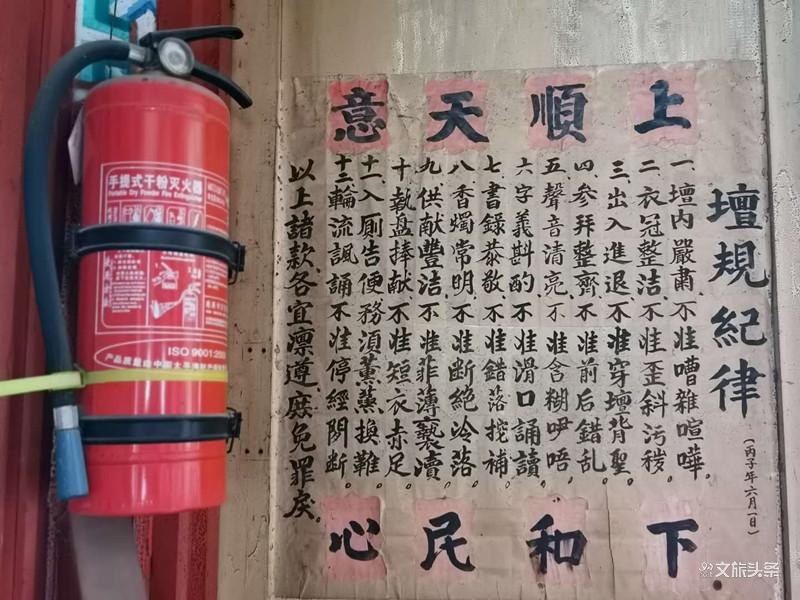 上順天意
壇規紀律
（丙子年六月一日）
一、壇内嚴肅、不准嘈雜喧嘩。
二、衣冠整洁、不准歪斜污秽。
三、出入進退、不准穿壇背聖。
四、参拜整齊、不准前后錯乱。
五、聲音清亮、不准含糊咿唔。
六、字義斟酌、不准滑口誦讀。
七、書錄恭敬、不准錯落挖補。
八、香燭常明、不准断絶冷落。
九、供献豐洁、不准菲薄褻瀆。
十、執盘捧献、不准短衣赤足。
十一、入厠告便、務須薰蘸换鞋。
十二、輪流諷誦、不准停經間断。
以上諸款、各宜凛遵、庶免罪戾。
下和民心
手提式干粉灭火器
Portable Dry Powder Fire Extinguisher
ISO 9001:200
文旅头条